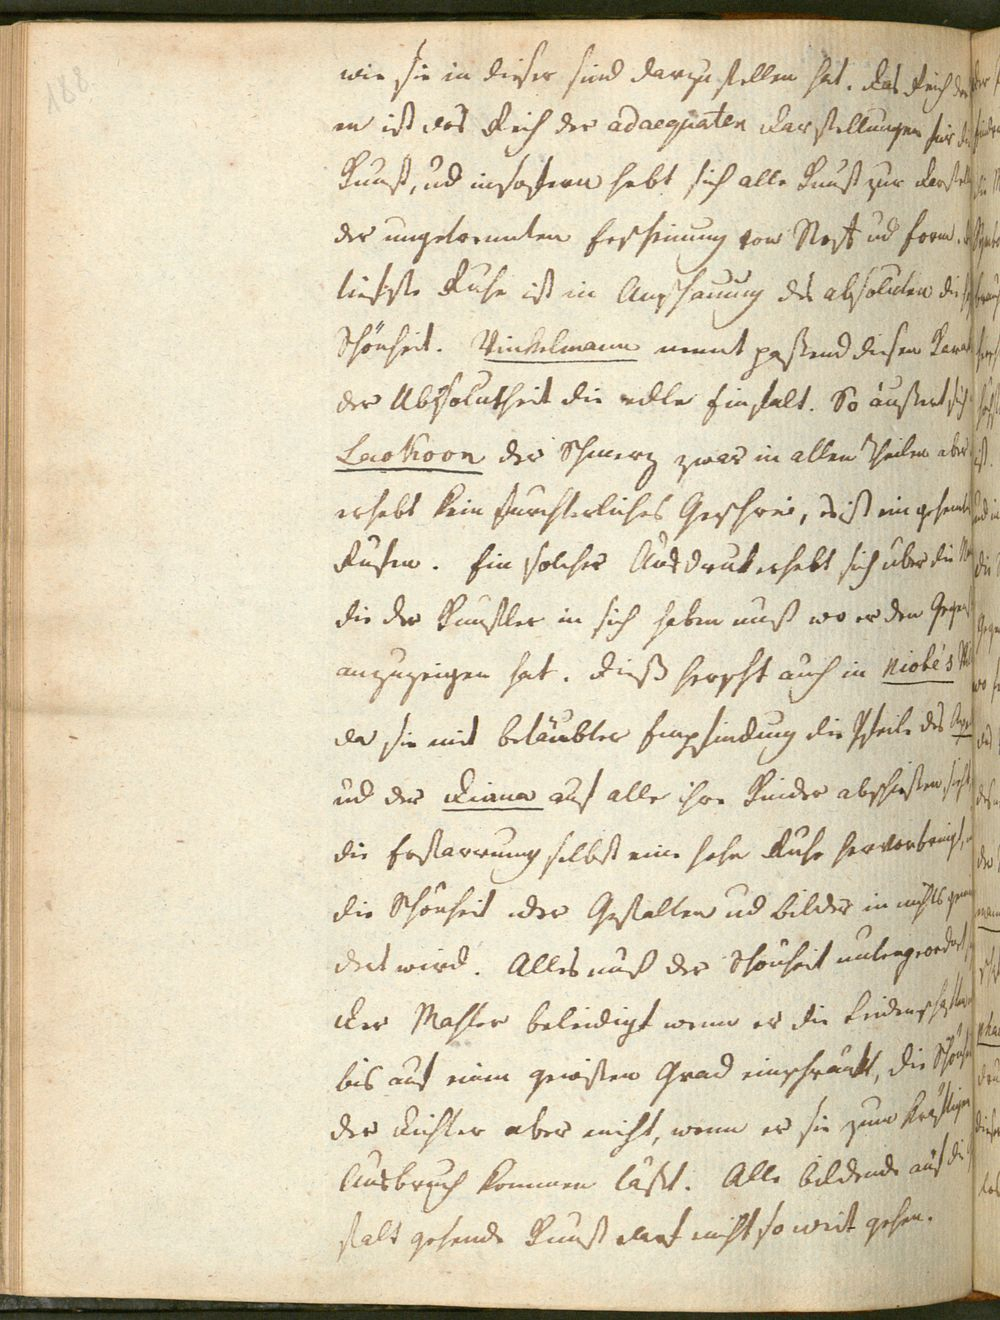 188
wie sie in dieser sind darzustellen hat. Das Reich der
en ist das Reich der adaequaten Darstellungen für die
Kunst, ud insofern hebt sich alle Kunst zur Darstell
der ungetrennten Erscheinung von Stoff ud Form.
tiefste Ruhe ist in Anschauung des absoluten die
Schönheit. Vinkelmann nennt paßend diesen Karak
der Absolutheit die edle Einfalt. So äußert sich
Laokoon der Schmerz zwar in allen Theilen aber
erhebt kein furchterliches Geschrei, es ist ein gehemt
Rufen. Ein solcher Ausdruk erhebt sich über die
die der Kunstler in sich haben muß wo er den Gegen
anzuzeigen hat. Dieß herscht auch in Niobe's
da sie mit betäubter Empfindung die Pfeile des
ud der Diana auf alle ihre Kinder abschießen sieht
die Erstarrung selbst eine hohe Ruhe hervorbringt,
die Schönheit der Gestalten ud Bilder in nichts
dert wird. Alles muß der Schönheit untergeordnet
Der Mahler beleidigt wenn er die Leidenschaften
bis auf einen gewißen Grad einschränkt, die Schönheit
der Dichter aber nicht, wenn er sie zum kräftigen
Ausbruch kommen läßt. Alle bildende auf die
stalt gehende Kunst darf nicht so weit gehen.